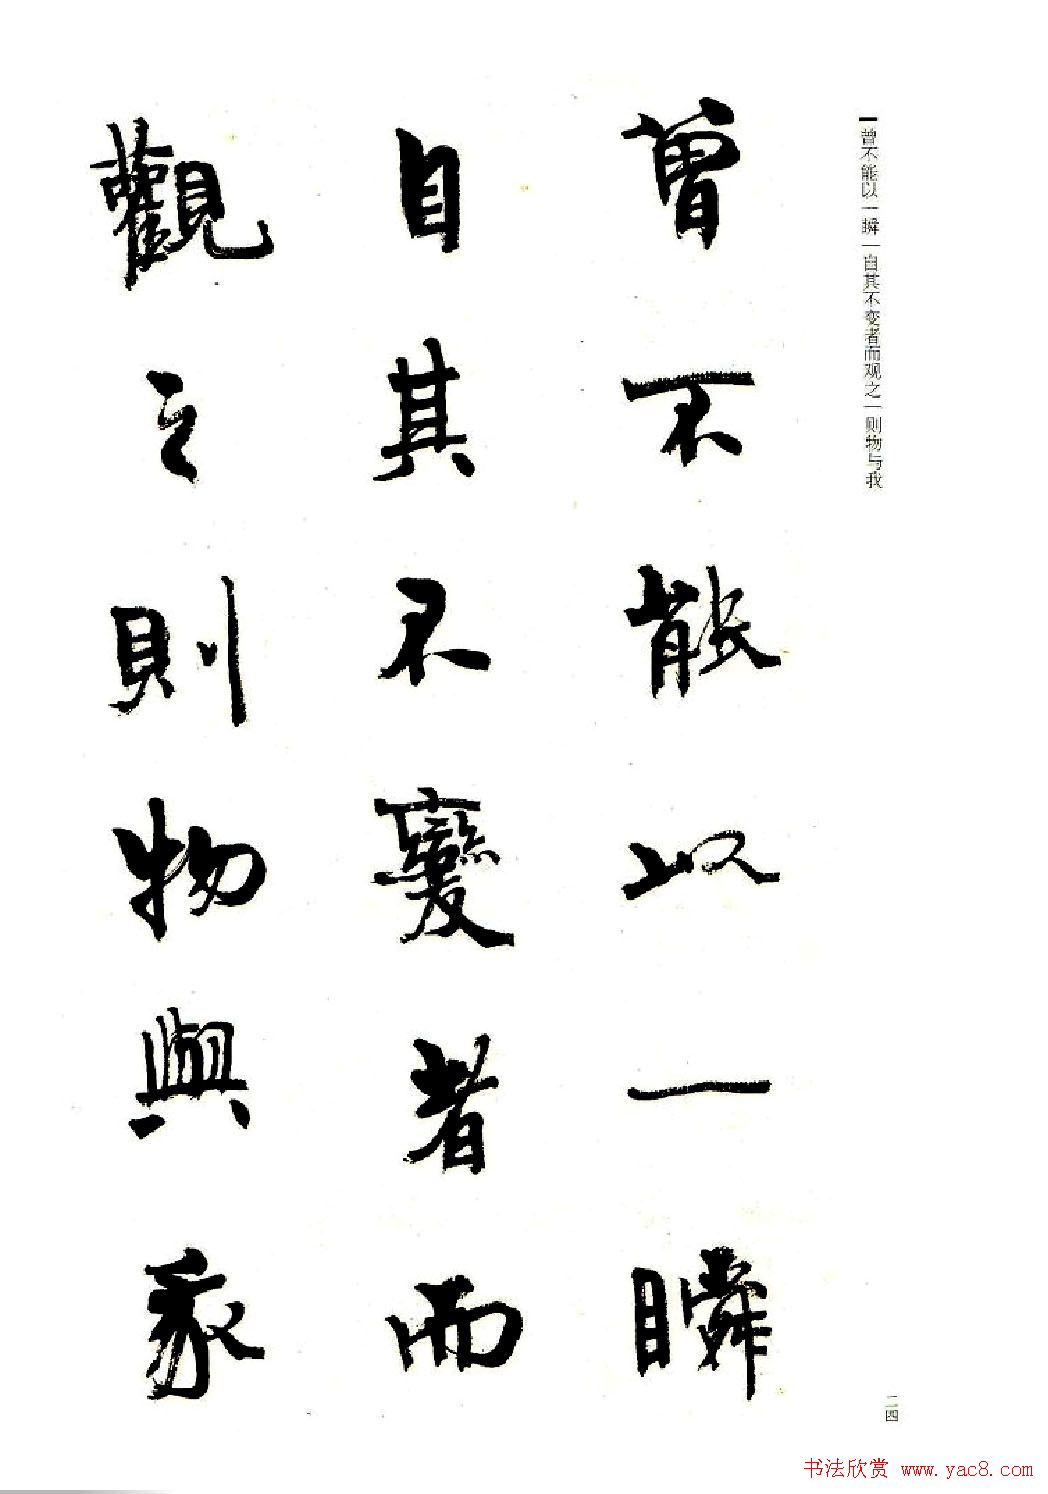 曾不能以一瞬一自其不变者而观之一则物与我
曾不能以一瞬
自其不變者而
觀之則物與我
二四
书法欣赏 www.yac8.com